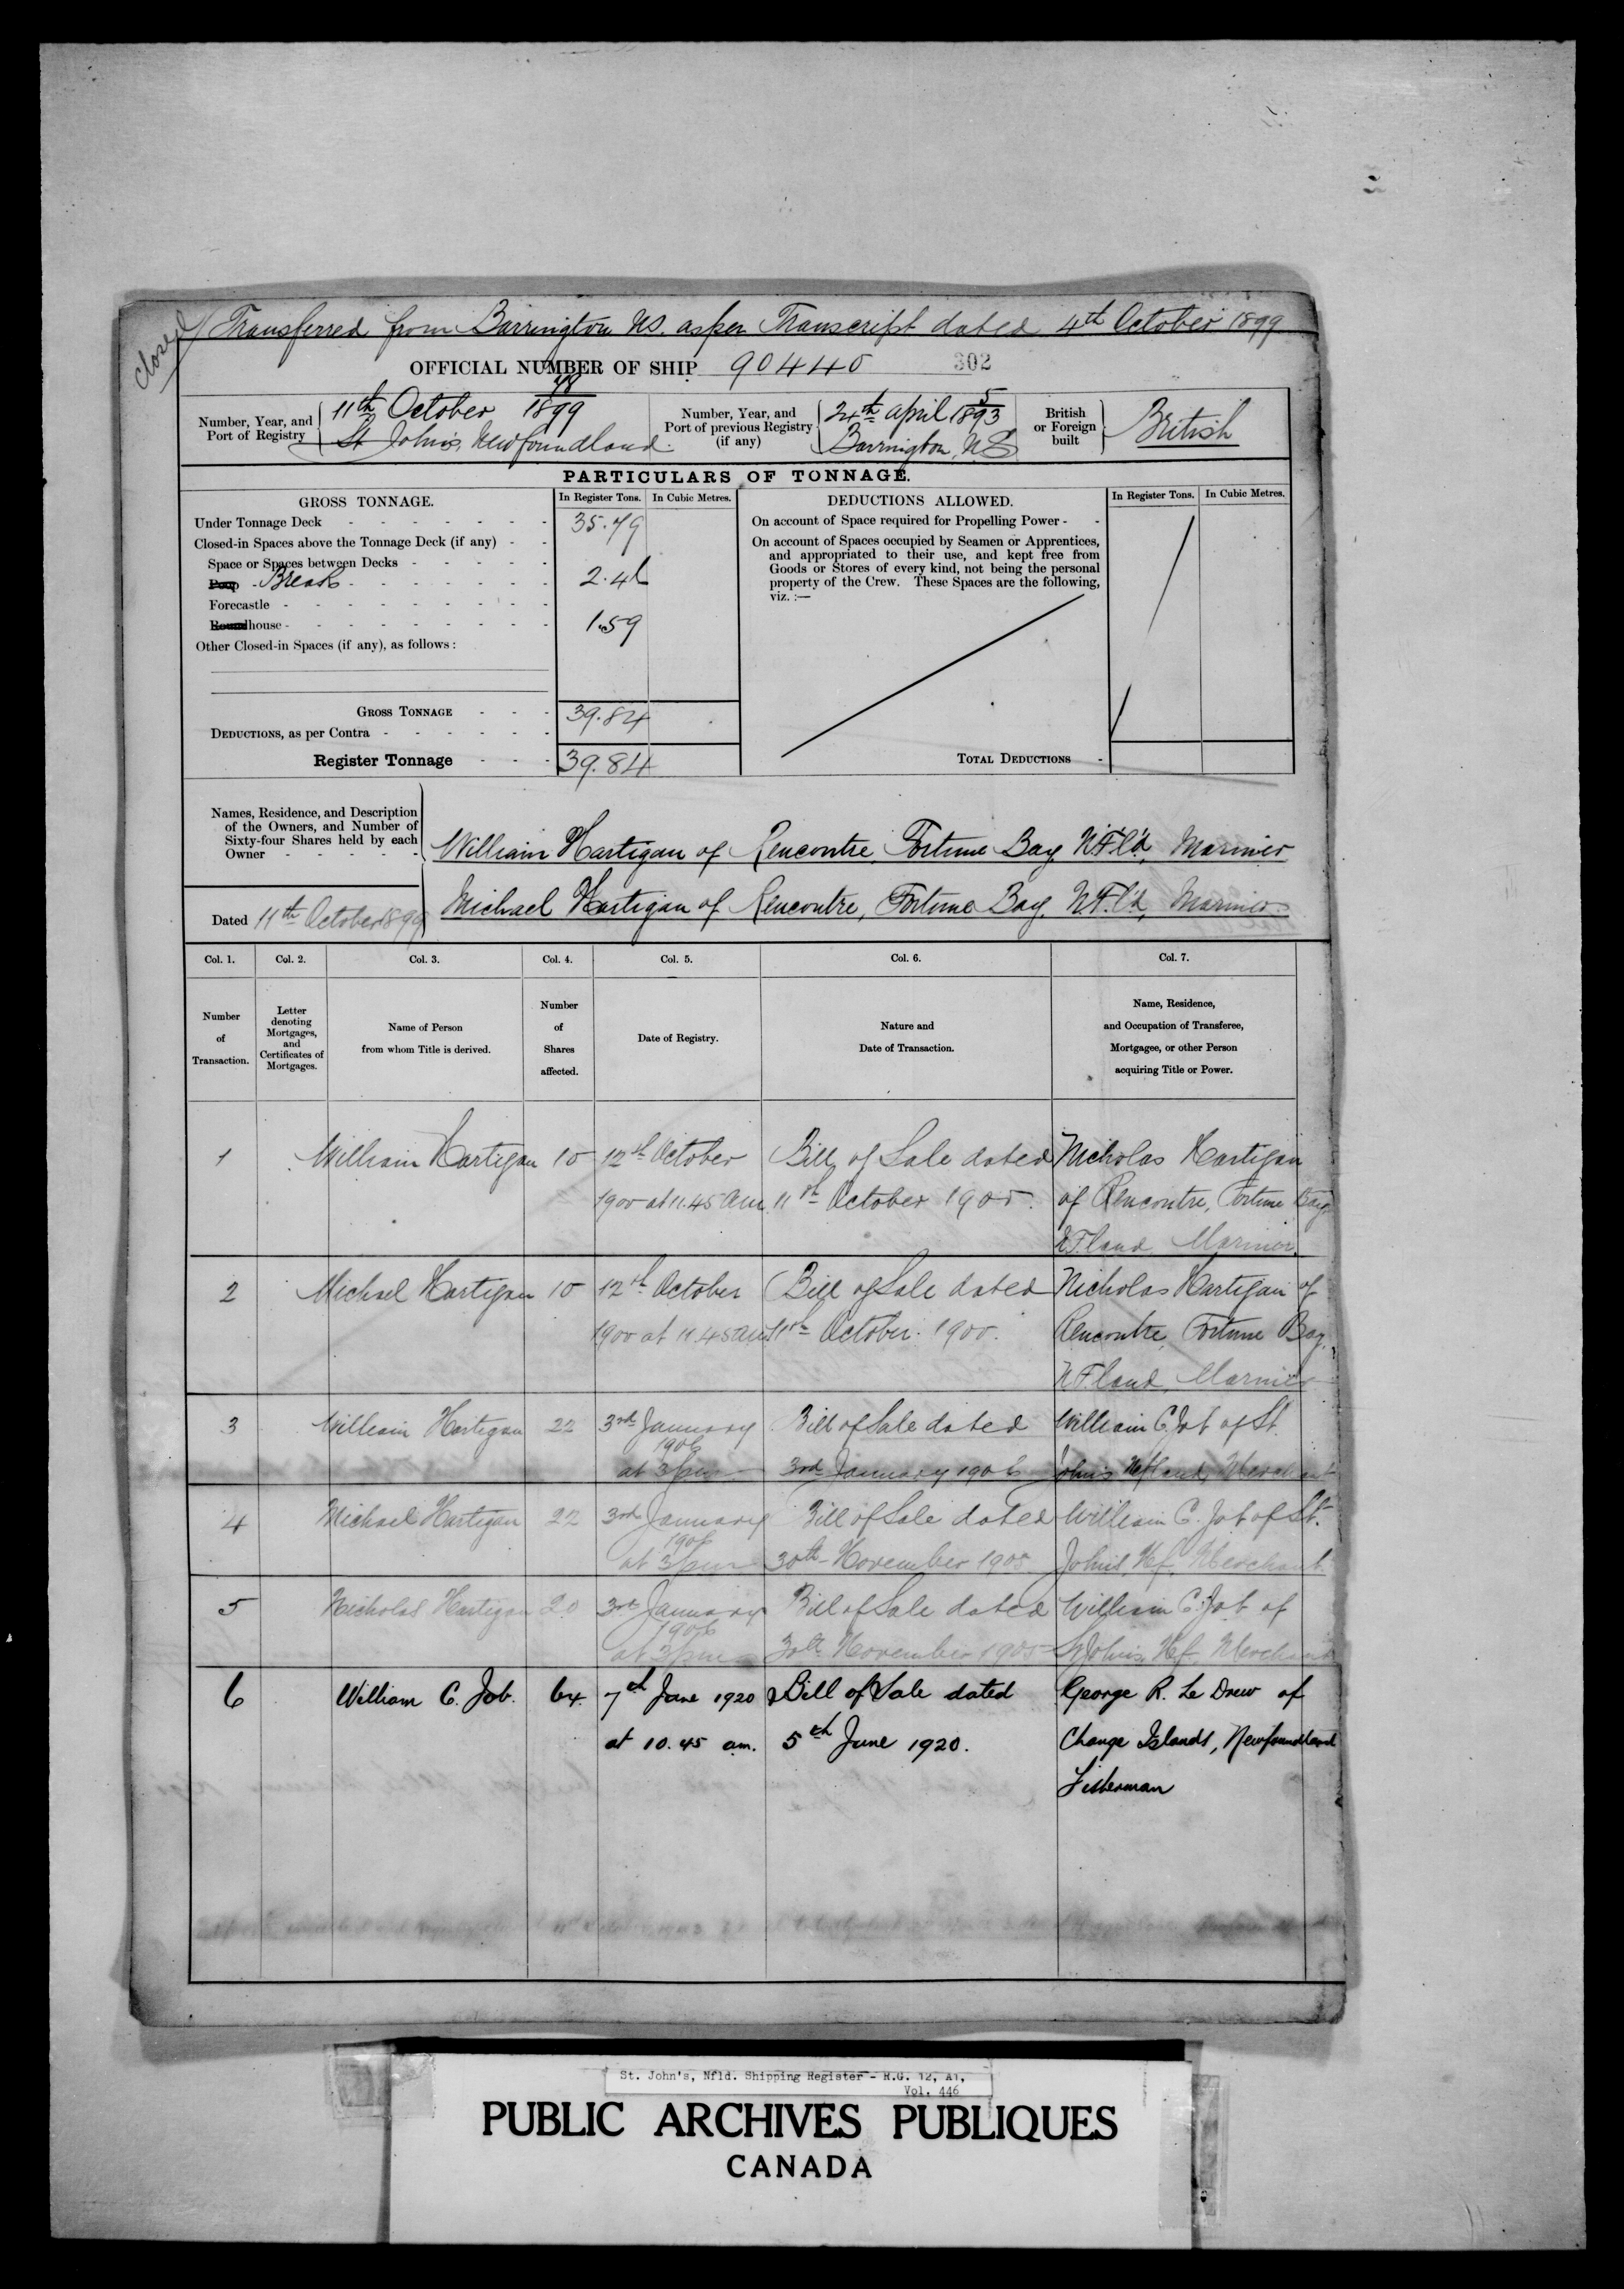 closed
Transferred from Barrington NS. as per Transcript dated 4th October 1899
OFFICIAL NUMBER OF SHIP 90440 302
Number, Year, and Port of Registry
48
11th October 1899
St John's, Newfoundland.
Number, Year, and Port of previous Registry (if any)
5
24th April 1893
Barrington, N.S
British or Foreign built
British
PARTICULARS OF TONNAGE.
GROSS TONNAGE. In Register Tons. In Cubic Metres. DEDUCTIONS ALLOWED. In Register Tons. In Cubic Metres.
Under Tonnage Deck 35.79
Closed-in Spaces above the Tonnage Deck (if any)
Space or Spaces between Decks
Poop Break 2.46
Forecastle
Roundhouse 1.59
Other Closed-in Spaces (if any), as follows:
GROSS TONNAGE 39.84
DEDUCTIONS, as per Contra
Register Tonnage 39.84
On account of Space required for Propelling Power
On account of Spaces occupied by Seamen or Apprentices,
and appropriated to their use, and kept free from
Goods or Stores of every kind, not being the personal
property of the Crew. These Spaces are the following,
viz. :—
TOTAL DEDUCTIONS
Names, Residence, and Description
of the Owners, and Number of
Sixty-four Shares held by each
Owner
William Hartigan of Rencontre, Fortune Bay, N.F.l'd, Mariner
Michael Hartigan of Rencontre, Fortune Bay, N.F.l'd, Mariner.
Dated 11th October 1899
Col. 1. Col. 2. Col. 3. Col. 4. Col. 5. Col. 6. Col. 7.
Number of Transaction.
Letter denoting Mortgages, and Certificates of Mortgages.
Name of Person from whom Title is derived.
Number of Shares affected.
Date of Registry.
Nature and Date of Transaction.
Name, Residence, and Occupation of Transferee, Mortgagee, or other Person acquiring Title or Power.
1 William Hartigan 10 12th October Bill of Sale dated Nicholas Hartigan
1900 at 11.45 am 11th October 1900. of Rencontre, Fortune Bay
N.F.land Mariner.
2 Michael Hartigan 10 12th October Bill of Sale dated Nicholas Hartigan of
1900 at 11.45 am 11th October. 1900. Rencontre, Fortune Bay,
N.F.land, Mariner
3 William Hartigan 22 3rd January Bill of Sale dated William C. Job of St.
1906
at 3 pm 3rd January 1906 Johns Nfland, Merchant
4 Michael Hartigan 22 3rd January Bill of Sale dated William C. Job of St.
1906
at 3 pm 30th November 1905 Johns, Nf. Merchant
5 Nicholas Hartigan 20 3rd January Bill of Sale dated William C. Job of
1906
at 3 pm 30th November 1905 St Johns, Nf. Merchant
6 William C. Job. 64. 7th June 1920 Bill of Sale dated George R. Le Drew of
at 10.45 am. 5th June 1920. Change Islands, Newfoundland
Fisherman
St. John's, Nfld. Shipping Register - R.G. 12, A1,
Vol. 446
PUBLIC ARCHIVES PUBLIQUES
CANADA